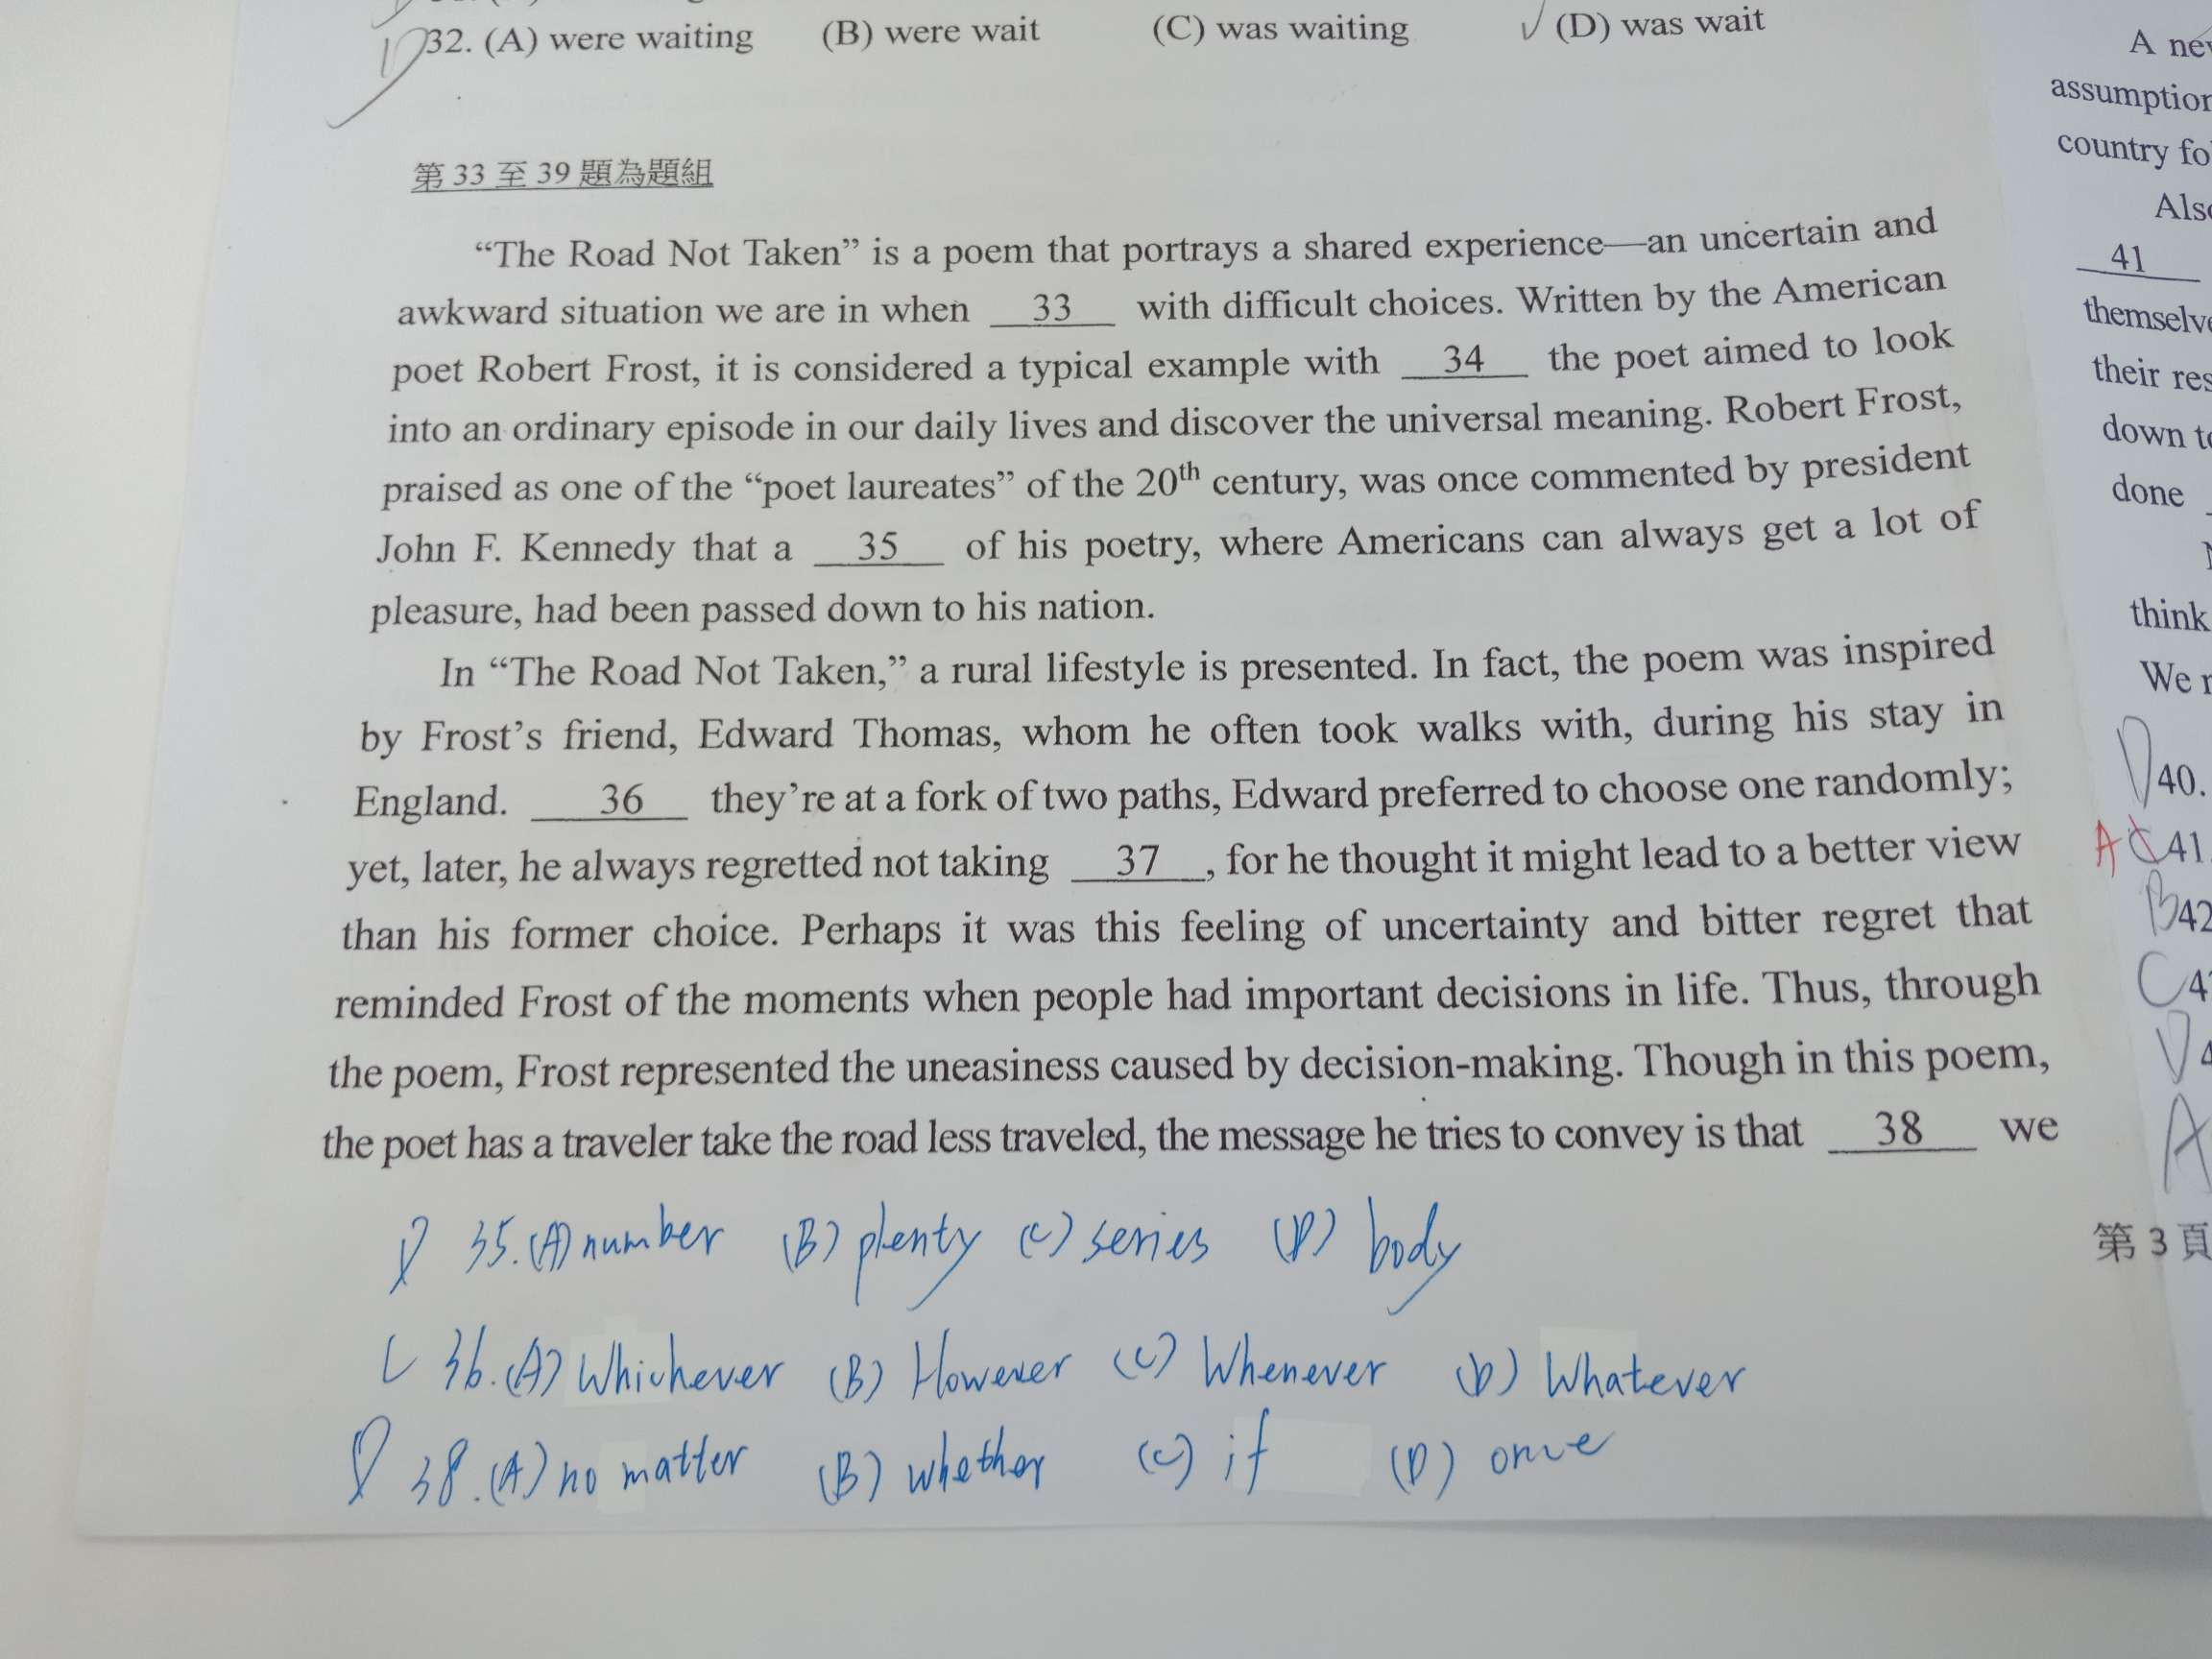 D 32. (A) were waiting (B) were wait (C) was waiting ✓ (D) was wait
第 33 至 39 題為題組
“The Road Not Taken” is a poem that portrays a shared experience—an uncertain and
awkward situation we are in when 33 with difficult choices. Written by the American
poet Robert Frost, it is considered a typical example with 34 the poet aimed to look
into an ordinary episode in our daily lives and discover the universal meaning. Robert Frost,
praised as one of the “poet laureates” of the 20th century, was once commented by president
John F. Kennedy that a 35 of his poetry, where Americans can always get a lot of
pleasure, had been passed down to his nation.
In “The Road Not Taken,” a rural lifestyle is presented. In fact, the poem was inspired
by Frost’s friend, Edward Thomas, whom he often took walks with, during his stay in
England. 36 they’re at a fork of two paths, Edward preferred to choose one randomly;
yet, later, he always regretted not taking 37 , for he thought it might lead to a better view
than his former choice. Perhaps it was this feeling of uncertainty and bitter regret that
reminded Frost of the moments when people had important decisions in life. Thus, through
the poem, Frost represented the uneasiness caused by decision-making. Though in this poem,
the poet has a traveler take the road less traveled, the message he tries to convey is that 38 we
D 35. (A) number (B) plenty (C) series (D) body
C 36. (A) Whichever (B) However (C) Whenever (D) Whatever
D 38. (A) no matter (B) whether (C) if (D) once
A
assumption
country
Also
41
down
done
think
We
D 40.
A C 41.
B 42
C
D
A
第 3 頁